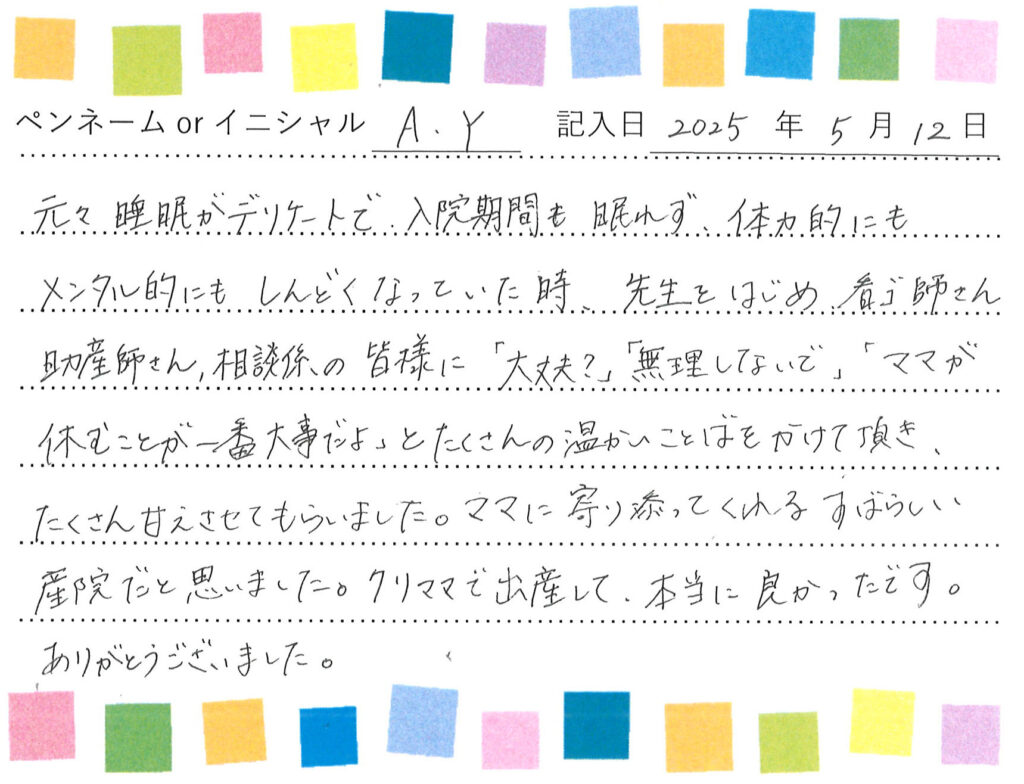 ペンネーム or イニシャル A.Y 記入日 2025 年 5 月 12 日
元々 睡眠がデリケートで、入院期間も 眠れず、体力的にも
メンタル的にも しんどくなっていた時、先生をはじめ、看ゴ師さん
助産師さん,相談係、の 皆様に「大丈夫?」「無理しないで」「ママが
休むことが一番大事だよ」とたくさんの温かいことばをかけて頂き、
たくさん甘えさせてもらいました。ママに 寄り添ってくれる すばらしい
産院だと思いました。クリママで出産して、本当に良かったです。
ありがとうございました。